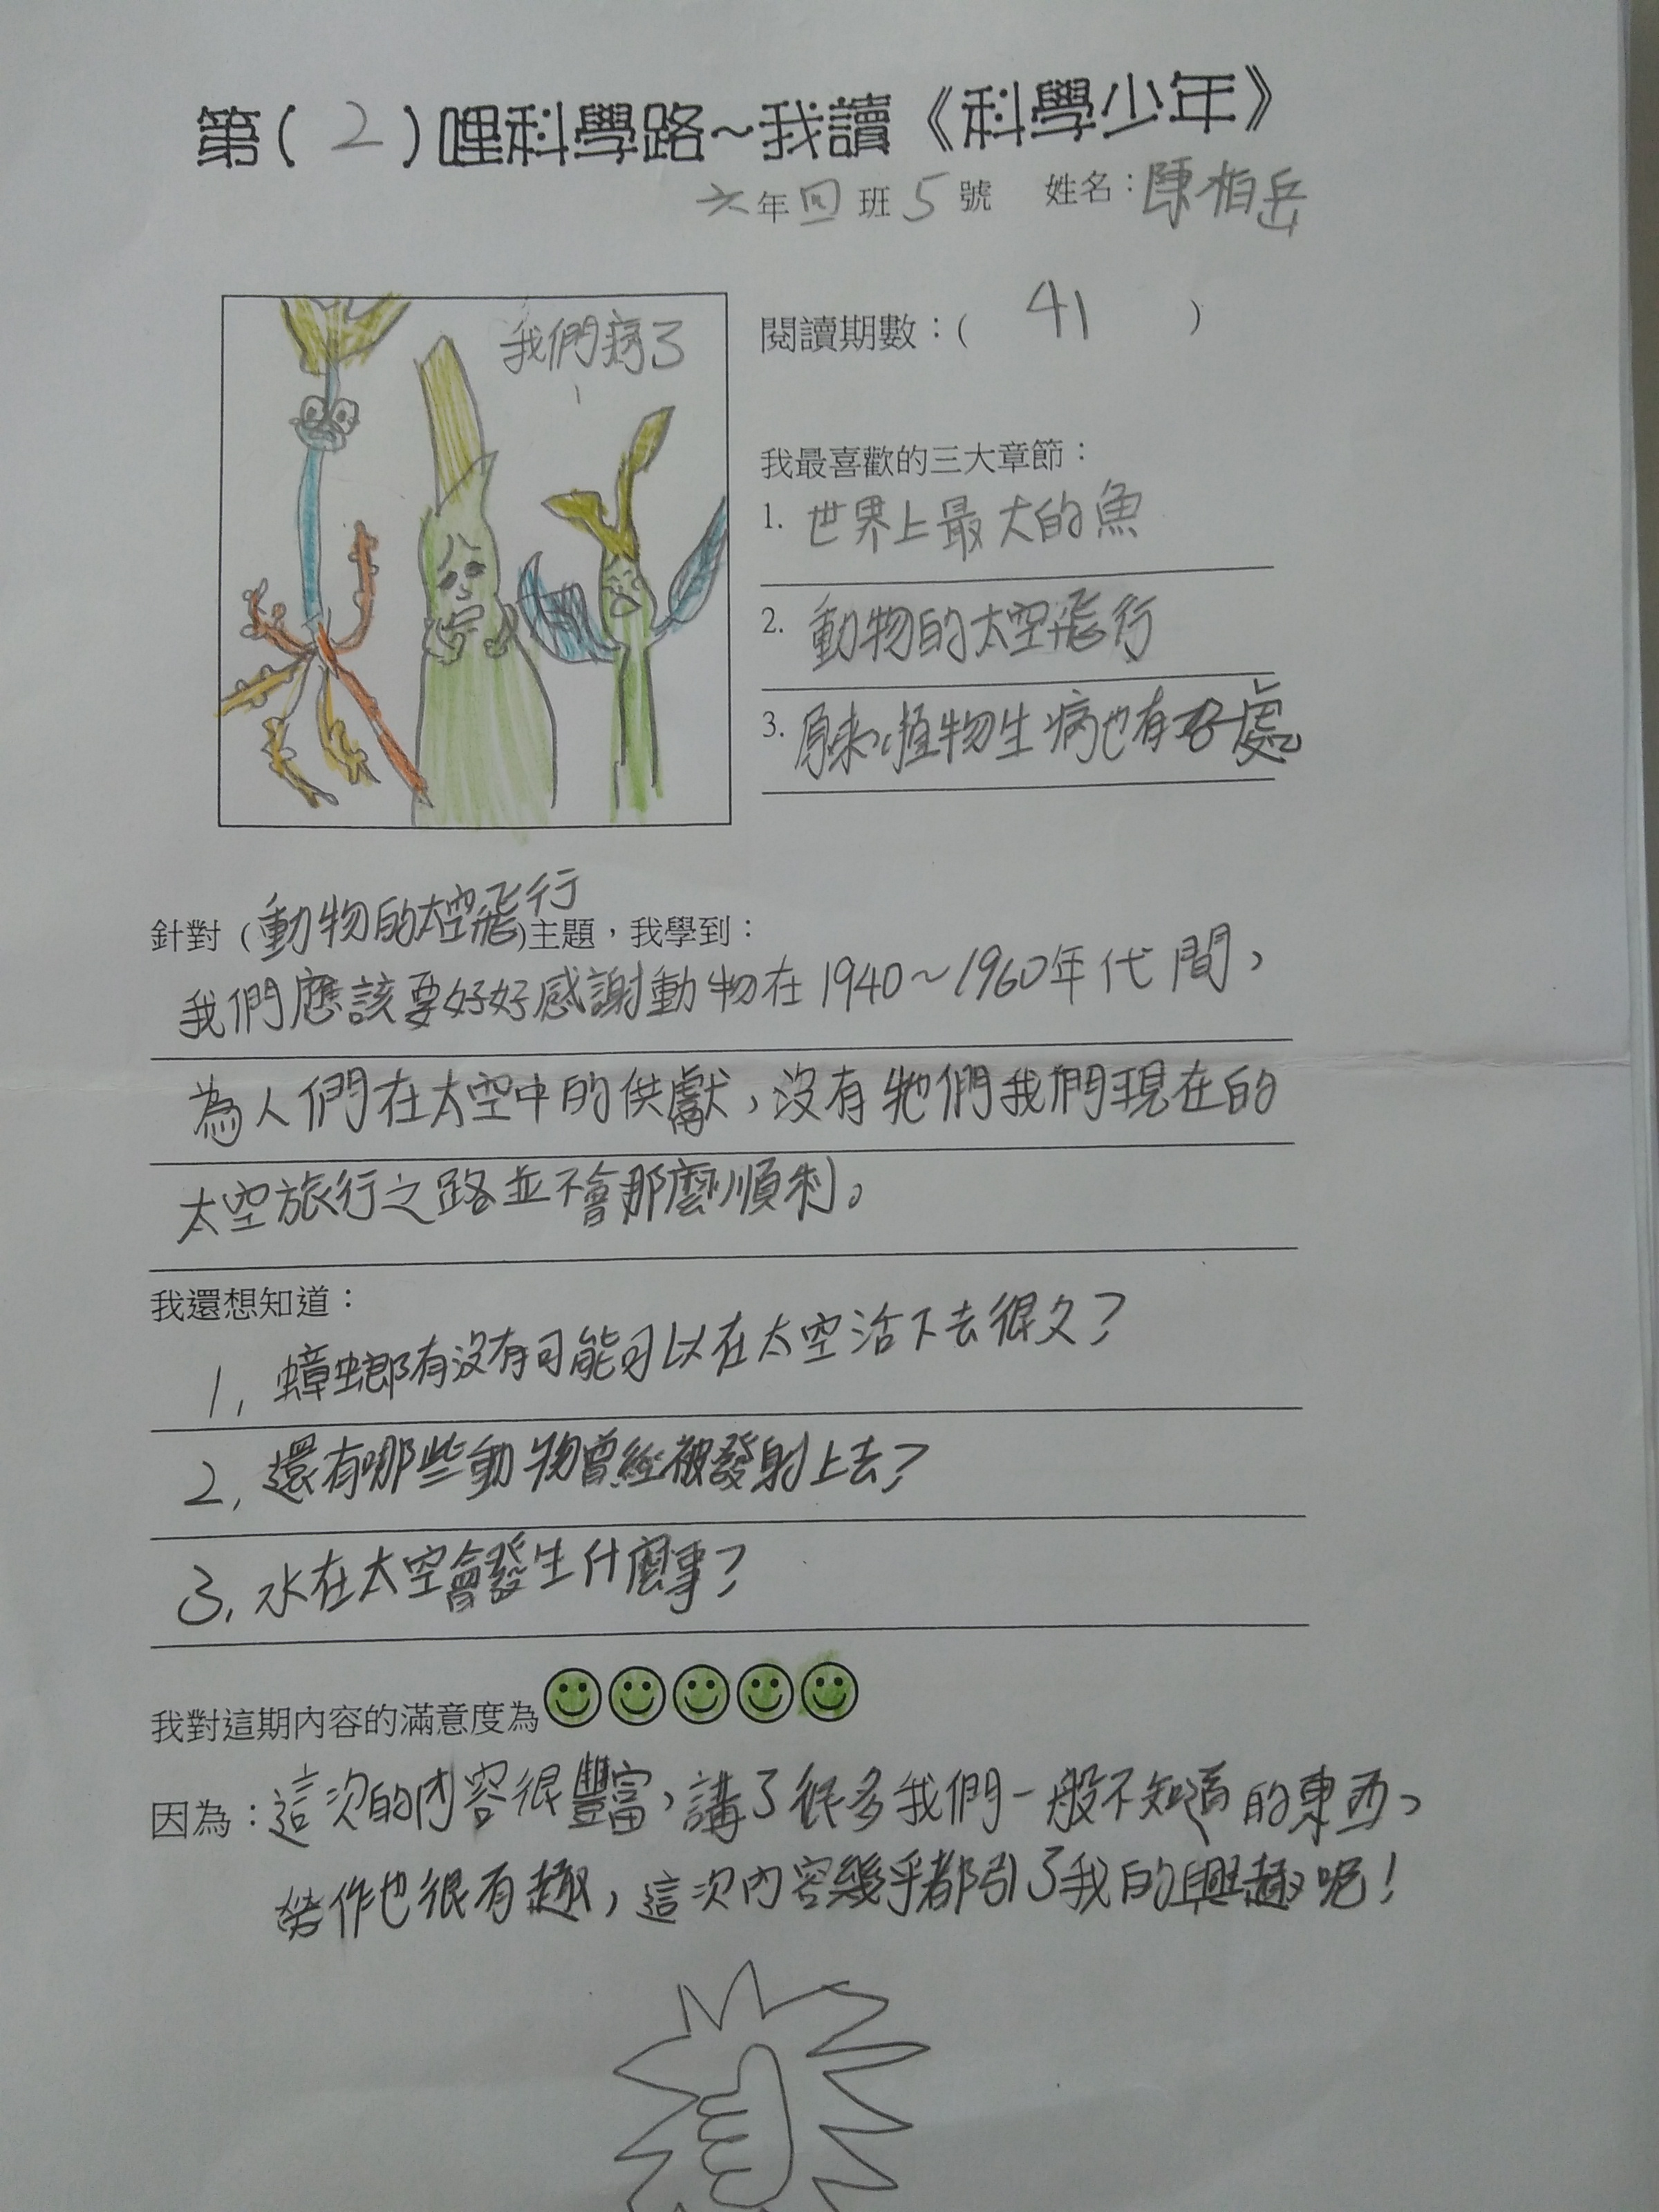 第(2)哩科學路~我讀《科學少年》
六年四班5號 姓名：陳柏岳
我們病了
閱讀期數：( 41 )
我最喜歡的三大章節：
1. 世界上最大的魚
2. 動物的太空飛行
3. 原來,植物生病也有好處
針對(動物的太空飛行)主題，我學到：
我們應該要好好感謝動物在1940~1960年代間，
為人們在太空中的供獻，沒有牠們我們現在的
太空旅行之路並不會那麼順利。
我還想知道：
1, 蟑螂有沒有可能可以在太空活下去很久？
2, 還有哪些動物曾經被發射上去？
3, 水在太空會發生什麼事？
我對這期內容的滿意度為
因為：這次的內容很豐富，講了很多我們一般不知道的東西、
勞作也很有趣，這次內容幾乎都引了我的興趣呢！